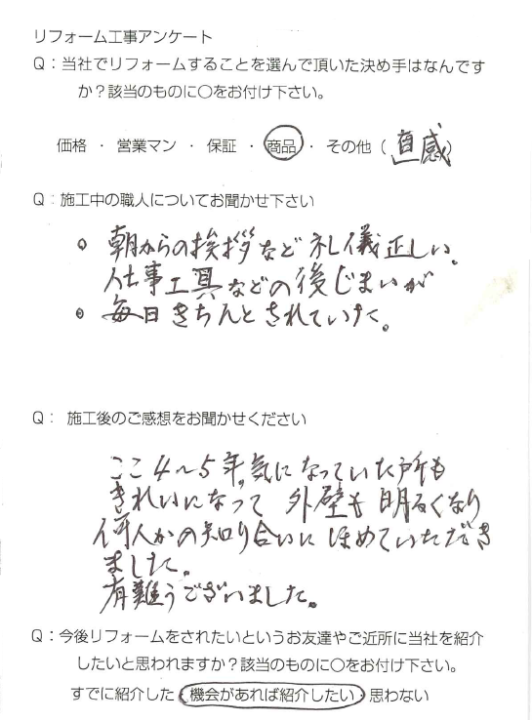 リフォーム工事アンケート
Q：当社でリフォームすることを選んで頂いた決め手はなんです
か？該当のものに〇をお付け下さい。
価格 ・ 営業マン ・ 保証 ・ 商品 ・ その他（直感）
Q：施工中の職人についてお聞かせ下さい
○ 朝からの挨拶など礼儀正しい。
仕事工具などの後じまいが
○ 毎日きちんとされていた。
Q： 施工後のご感想をお聞かせください
ここ4～5年気になっていた所も
きれいになって 外壁も明るくなり
何人かの知り合いにほめていただき
ました。
有難うございました。
Q：今後リフォームをされたいというお友達やご近所に当社を紹介
したいと思われますか？該当のものに〇をお付け下さい。
すでに紹介した 機会があれば紹介したい 思わない